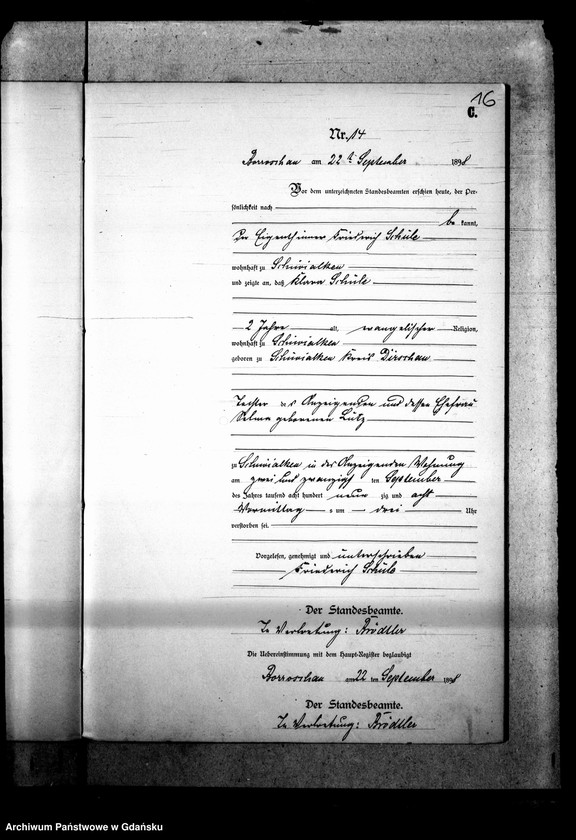 16
C.
Nr. 14
Borroschau am 22ten September 1898
Vor dem unterzeichneten Standesbeamten erschien heute, der Per-
sönlichkeit nach
be kannt,
Der Eigenthümer Friedrich Schüle
wohnhaft zu Schiwialken
und zeigte an, daß Klara Schüle
2 Jahre alt, evangelischer Religion,
wohnhaft zu Schiwialken
geboren zu Schiwialken Kreis Dirschau
Tochter des Anzeigenden und dessen Ehefrau
Selma geborenen Lutz
zu Schiwialken in des Anzeigenden Wohnung
am zwei und zwanzigsten September
des Jahres tausend acht hundert neun zig und acht
Vormittag s um drei Uhr
verstorben sei.
Vorgelesen, genehmigt und unterschrieben
Friederich Schüle
Der Standesbeamte.
In Vertretung:
Die Uebereinstimmung mit dem Haupt-Register beglaubigt
Borroschau am 22 ten September 1898
Der Standesbeamte.
In Vertretung:
Archiwum Państwowe w Gdańsku